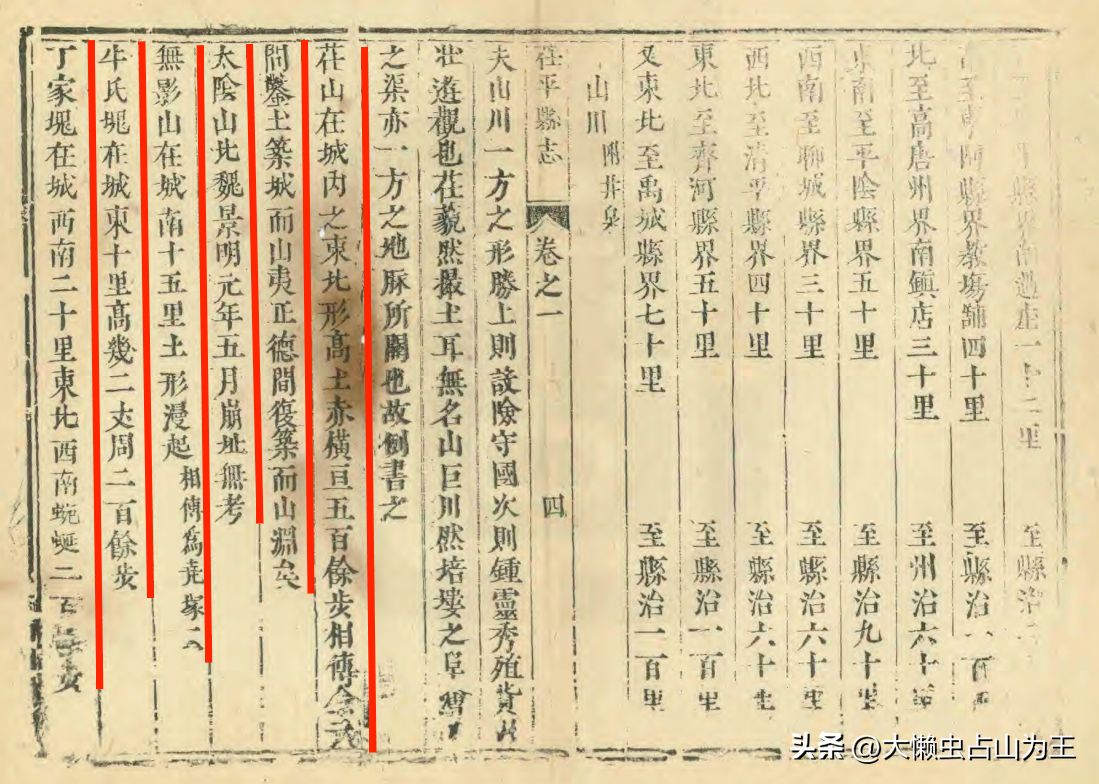 縣界南過莊一十二里 至縣治
至東阿縣界教場舖四十里 至縣治一百
北至高唐州界南鎮店三十里 至州治六十里
東南至平陰縣界五十里 至縣治九十里
西南至聊城縣界三十里 至縣治六十里
西北至清平縣界四十里 至縣治六十里
東北至齊河縣界五十里 至縣治一百里
又東北至禹城縣界七十里 至縣治一百里
山川 附井泉
茌平縣志 卷之一 四
夫山川一方之形勝上則設險守國次則鍾靈秀殖貨
壯遊觀也茌藐然撮土耳無名山巨川然培塿之阜
之渠亦一方之地脉所關也故倂書之
茌山在城内之東北形高土赤橫亘五百餘步相傳金
間鑿土築城而山夷正德間復築而山淵矣
太陰山北魏景明元年五月崩址無考
無影山在城南十五里土形漫起 相傳為堯冢云
牛氏塊在城東十里高幾二丈周二百餘步
丁家塊在城西南二十里東北西南蜿蜒二百
头条 @大懒虫占山为王